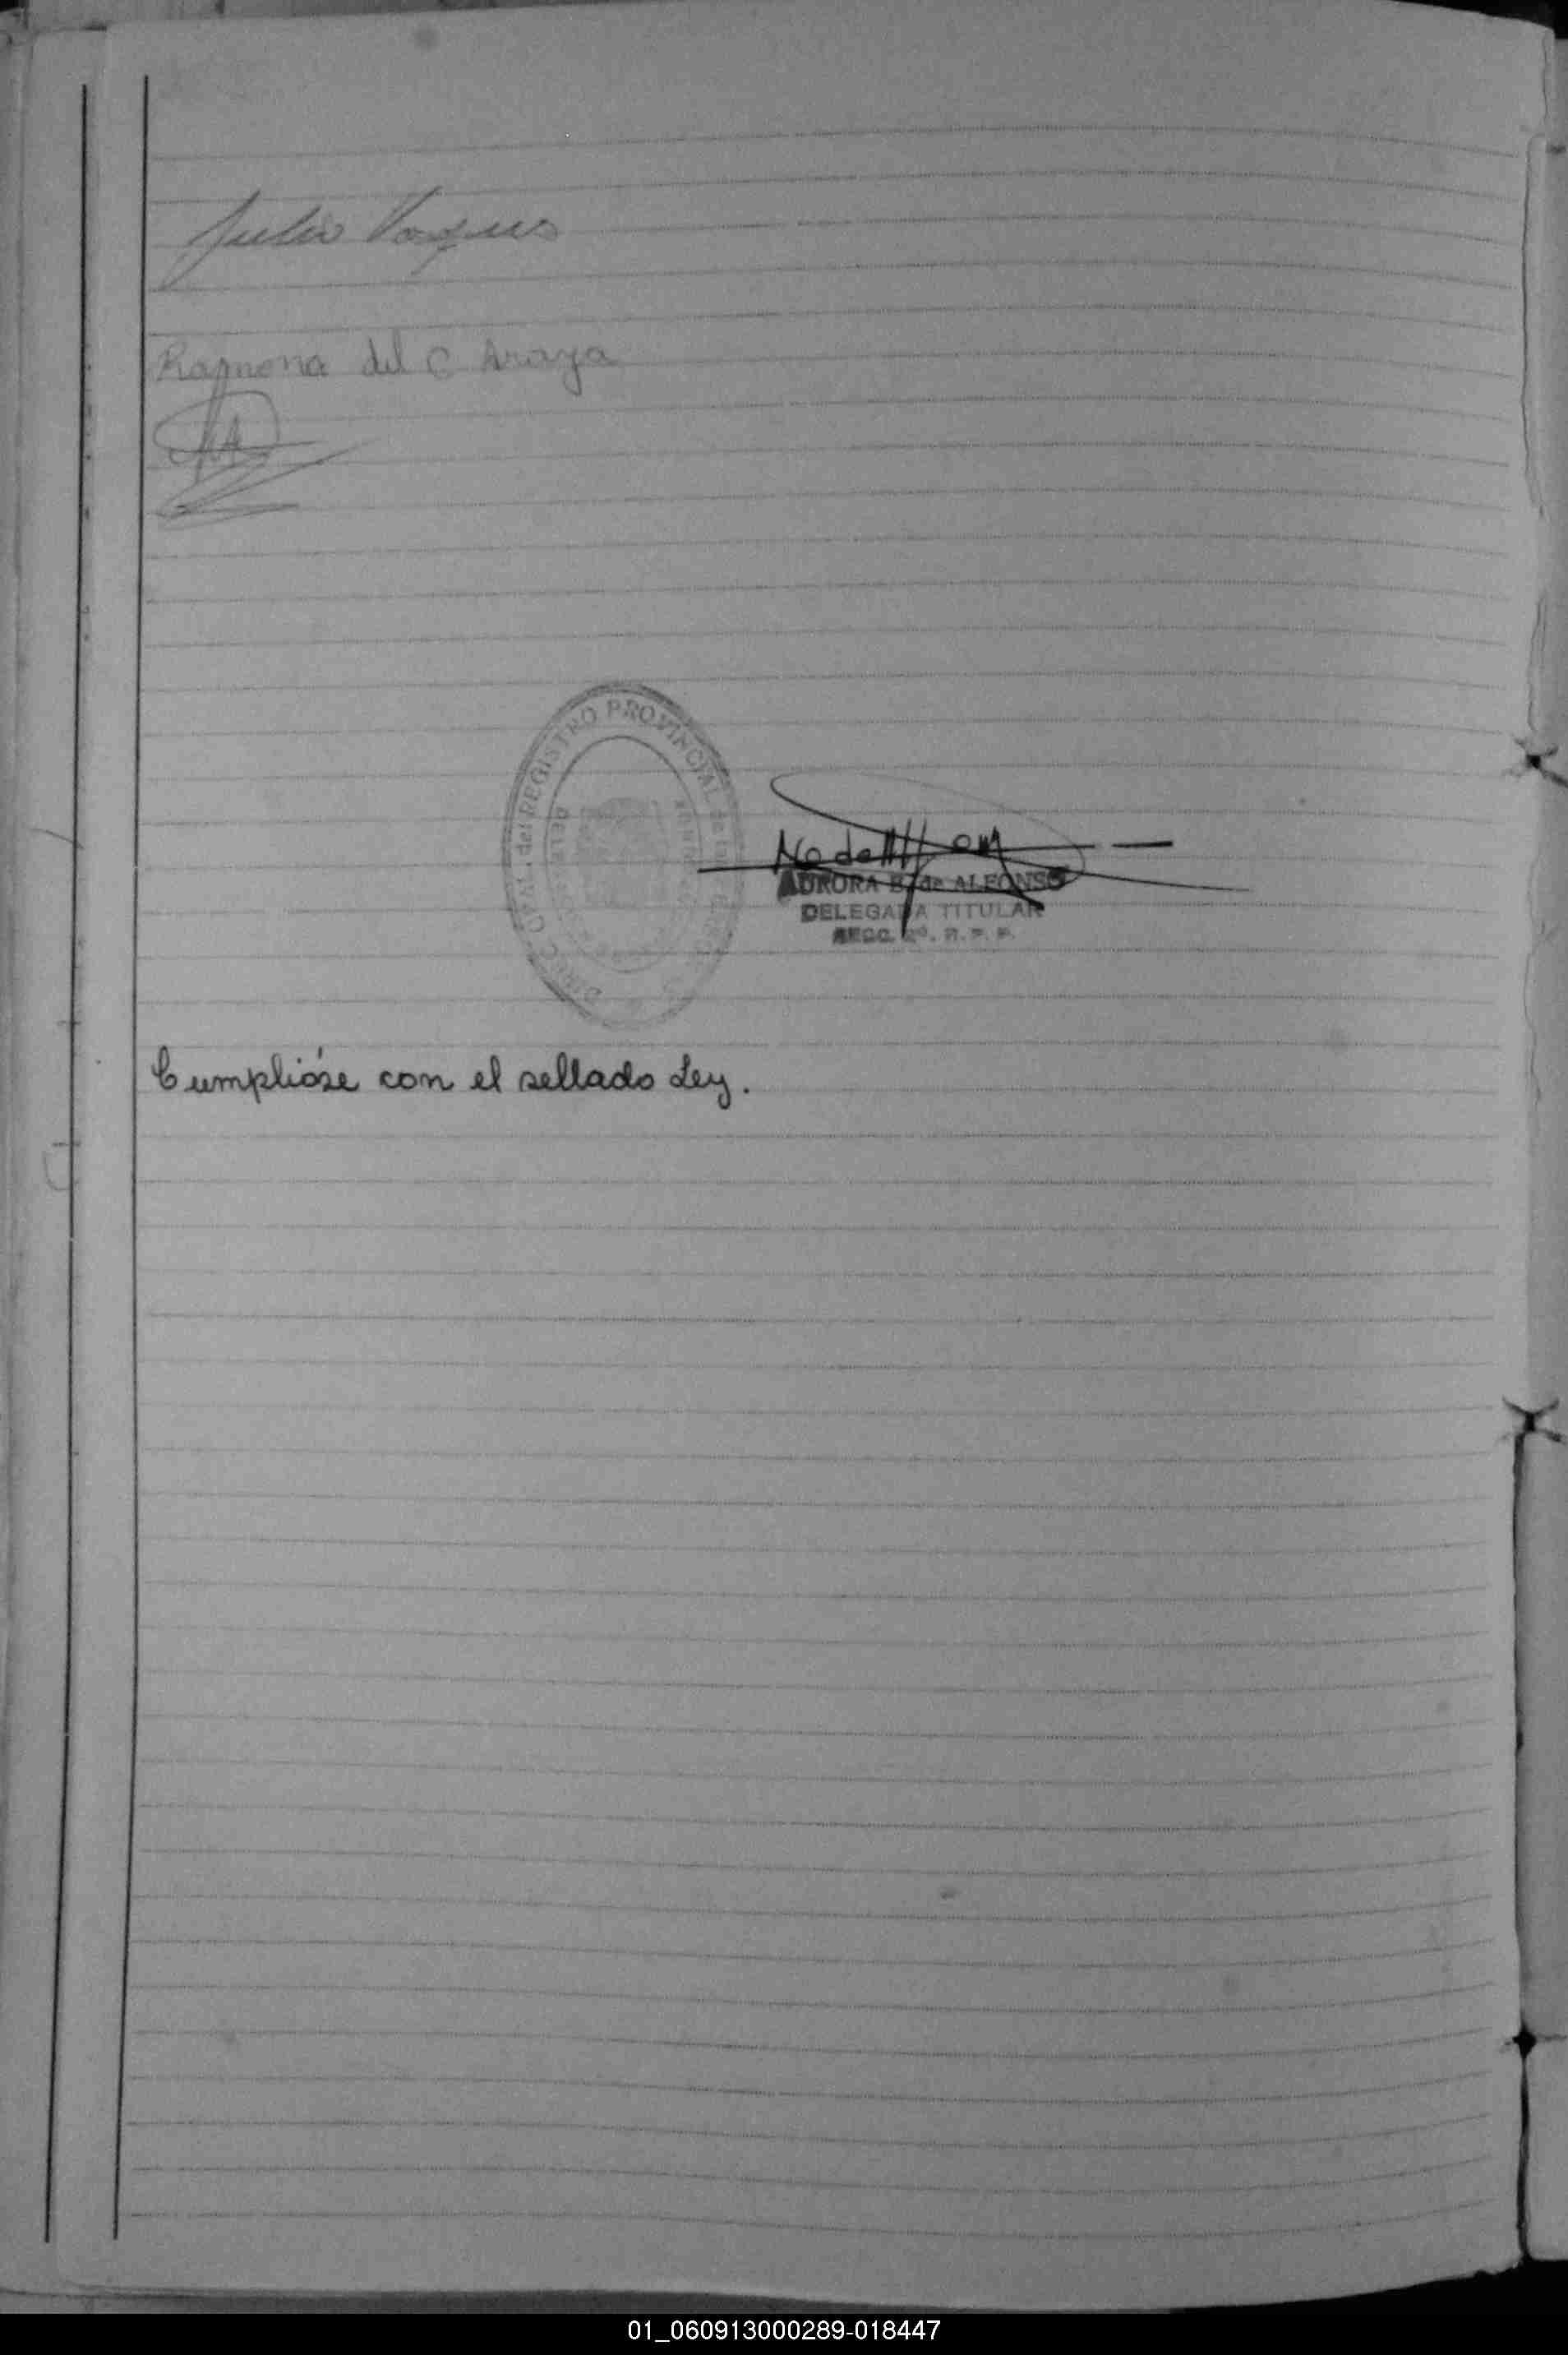 Julio
Ramona del C Araya
DIREC. GRAL. del REGISTRO PROVINCIAL de las
AURORA B. de ALFONSO
DELEGADA TITULAR
SECC. 2ª. R. P. P.
Cumplióse con el sellado Ley.
01_060913000289-018447